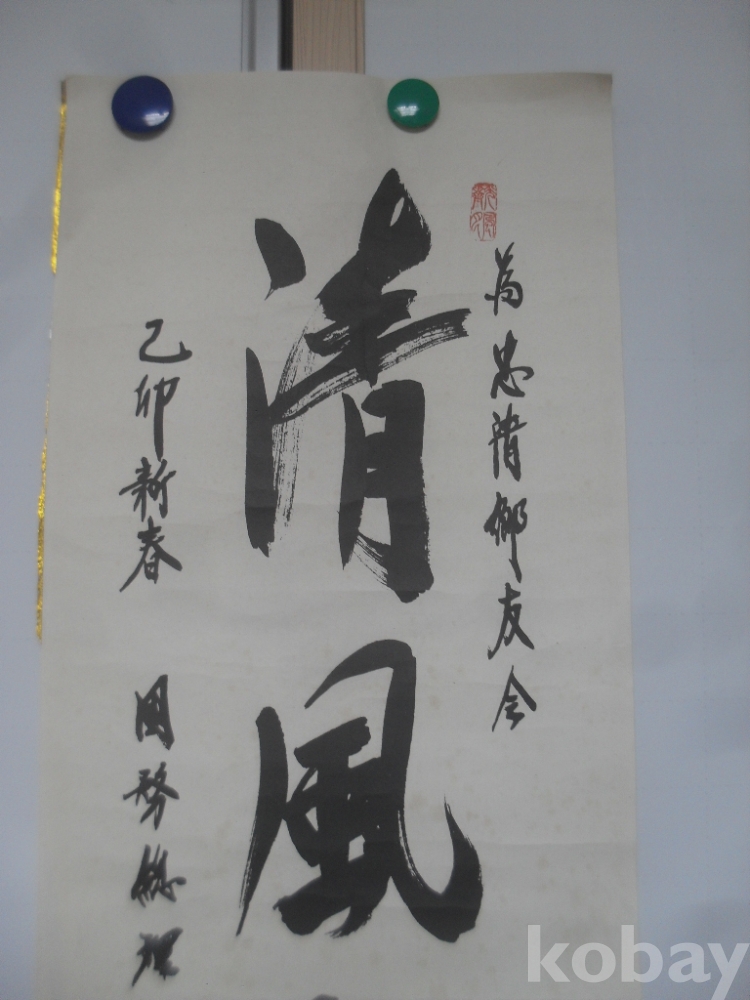 為忠清鄉友会
清風
己卯新春 國務總理
kobay